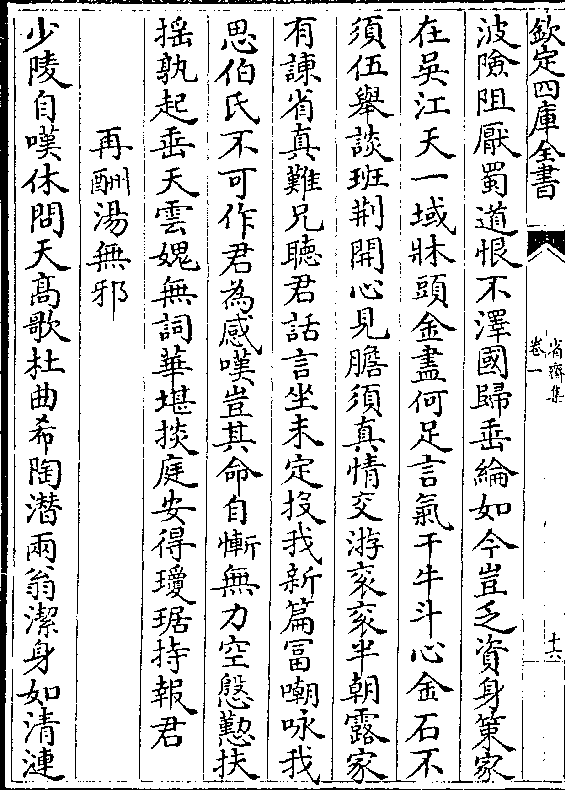 欽定四庫全書
省齋集
卷一
十六
波險阻厭蜀道恨不澤國歸垂綸如今豈乏資身策家
在吳江天一域牀頭金盡何足言氣干牛斗心金石不
須伍舉談班荆開心見膽須真情交游衮衮半朝露家
有諫省真難兄聽君話言坐未定投我新篇冨嘲咏我
思伯氏不可作君為感嘆豈其命自慚無力空慇懃扶
揺孰起垂天雲媿無詞華堪掞庭安得瓊琚持報君
再酬湯無邪
少陵自嘆休問天髙歌杜曲希陶潛兩翁潔身如清漣